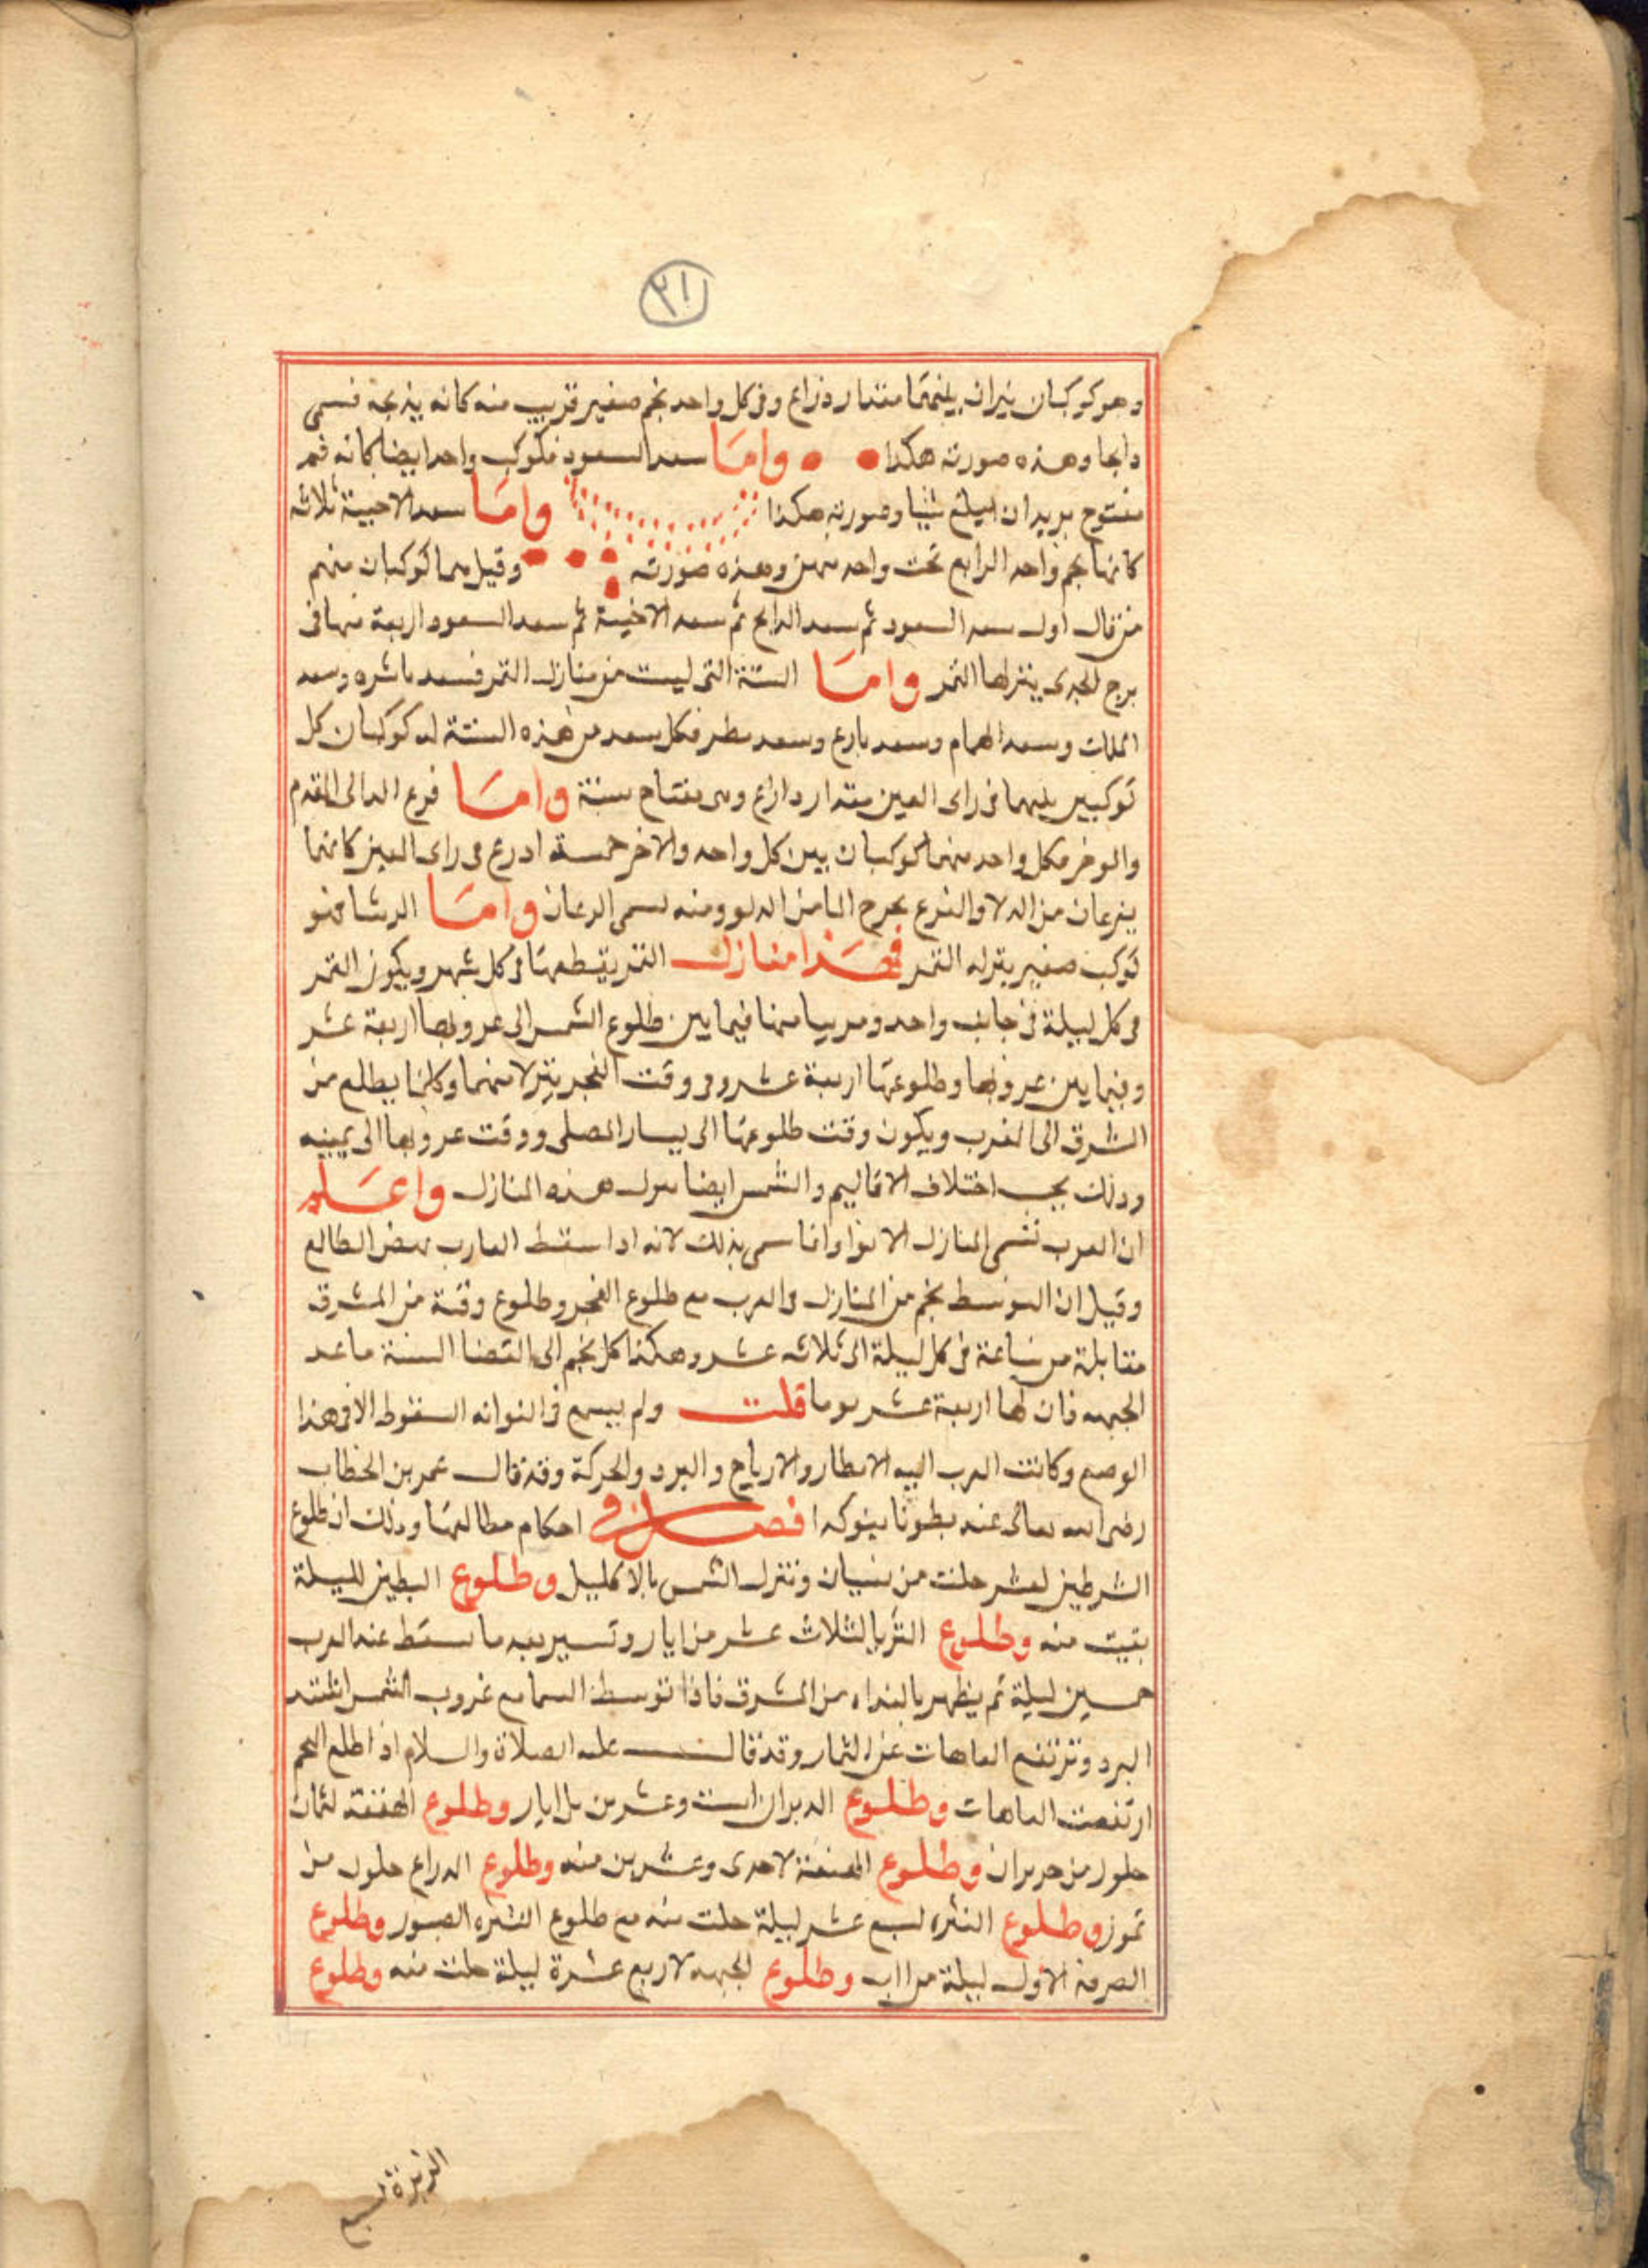 ٢١
وهو كوكبان نيران بينهما مقدار ذراع وفى كل واحد نجم صغير قريب منه كانه يذبحه فسمى
دابحا وهذه صورته هكذا واما سعد السعود فكوكب واحد ايضا كانه فم
مفتوح يريد ان يبلع شيا وصورته هكذا واما سعد الاخبية ثلاثة
كانها نجم واحد الرابع تحت واحد منهن وهذه صورته وقيل هما كوكبان منهم
من قال اول سعد السعود ثم سعد الدابح ثم سعد الاخبية ثم سعد السعود اربعة منها فى
برج الجدى ينزلها القمر واما الستة التى ليست من منازل القمر فسعد ناشره وسعد
الملك وسعد الهمام وسعد بارع وسعد مطر فكل سعد من هذه الستة له كوكبان كل
كوكبين بينهما فى راى العين مقدار دارع وهى مفتاح ستة واما فرع الدالى المقدم
والموخر فكل واحد منهما كوكبان بين كل واحد والاخر خمسة ادرع فى راى العين كانهما
يفرعان من الدلا والفرع يخرج الما من الدلو ومنه سمى الدعان واما الرشا فهو
كوكب صغير ينزله القمر فهذا منازل القمر يقطعها فى كل شهر ويكون القمر
فى كل ليلة فى جانب واحد وقريبا منها فيما بين طلوع الشمس الى عروبها اربعة عشر
وفيما بين عروبها وطلوعها اربعة عشر وفى وقت الفجر ينزلا منهما وكلها يطلع من
الشرق الى الغرب ويكون وقت طلوعها الى يسار المصلى ووقت عروبها الى يمينه
وذلك بحسب اختلاف الاقاليم والشمس ايضا تنزل هذه المنازل واعلم
ان العرب تسمى المنازل الانوا وانما سمى بذلك لانه ادا سقط الغارب نهض الطالع
وقيل ان النو سقط نجم من المنازل فى الغرب مع طلوع الفجر وطلوع وقته من المشرق
مقابلة من ساعة فى كل ليلة الى ثلاثه عشر وهكذا كل نجم الى انقضا السنة ماعد
الجبهه فان لها اربعة عشر يوما قلت ولم يسمع فى النوانه السقوط الا فى هذا
الوضع وكانت العرب اليه الامطار والارياح والبرد والحركة وقد قال عمر بن الخطاب
رضى الله تعالى عنه بطونا بنوكدا فصل فى احكام مطالعها وذلك ان طلوع
الشرطين لعشر خلت من نيسان وتنزل الشمس بالاكليل وطلوع البطين لليلة
بقيت منه وطلوع الثريا لثلاث عشر من ايار وتسير بعد ما سقط عند العرب
خمسين ليلة ثم يظهر بالغداه من المشرق فاذا توسط السما مع غروب الشمس اشتد
البرد وترتفع العاهات عن الثمار وقد قال عليه الصلاة والسلام اذا طلع النجم
ارتفعت العاهات وطلوع الدبران لست وعشرين من ايار وطلوع الهقعة لثمان
خلون من حريران وطلوع الهنعة لاحدى وعشرين منه وطلوع الدراع خلون من
تموز وطلوع النثره لسبع عشر ليلة خلت منه مع طلوع الشعره العبور وطلوع
الصرفة الاول ليلة من اب وطلوع الجبهه لاربع عشرة ليلة خلت منه وطلوع
الزبرة لسبع